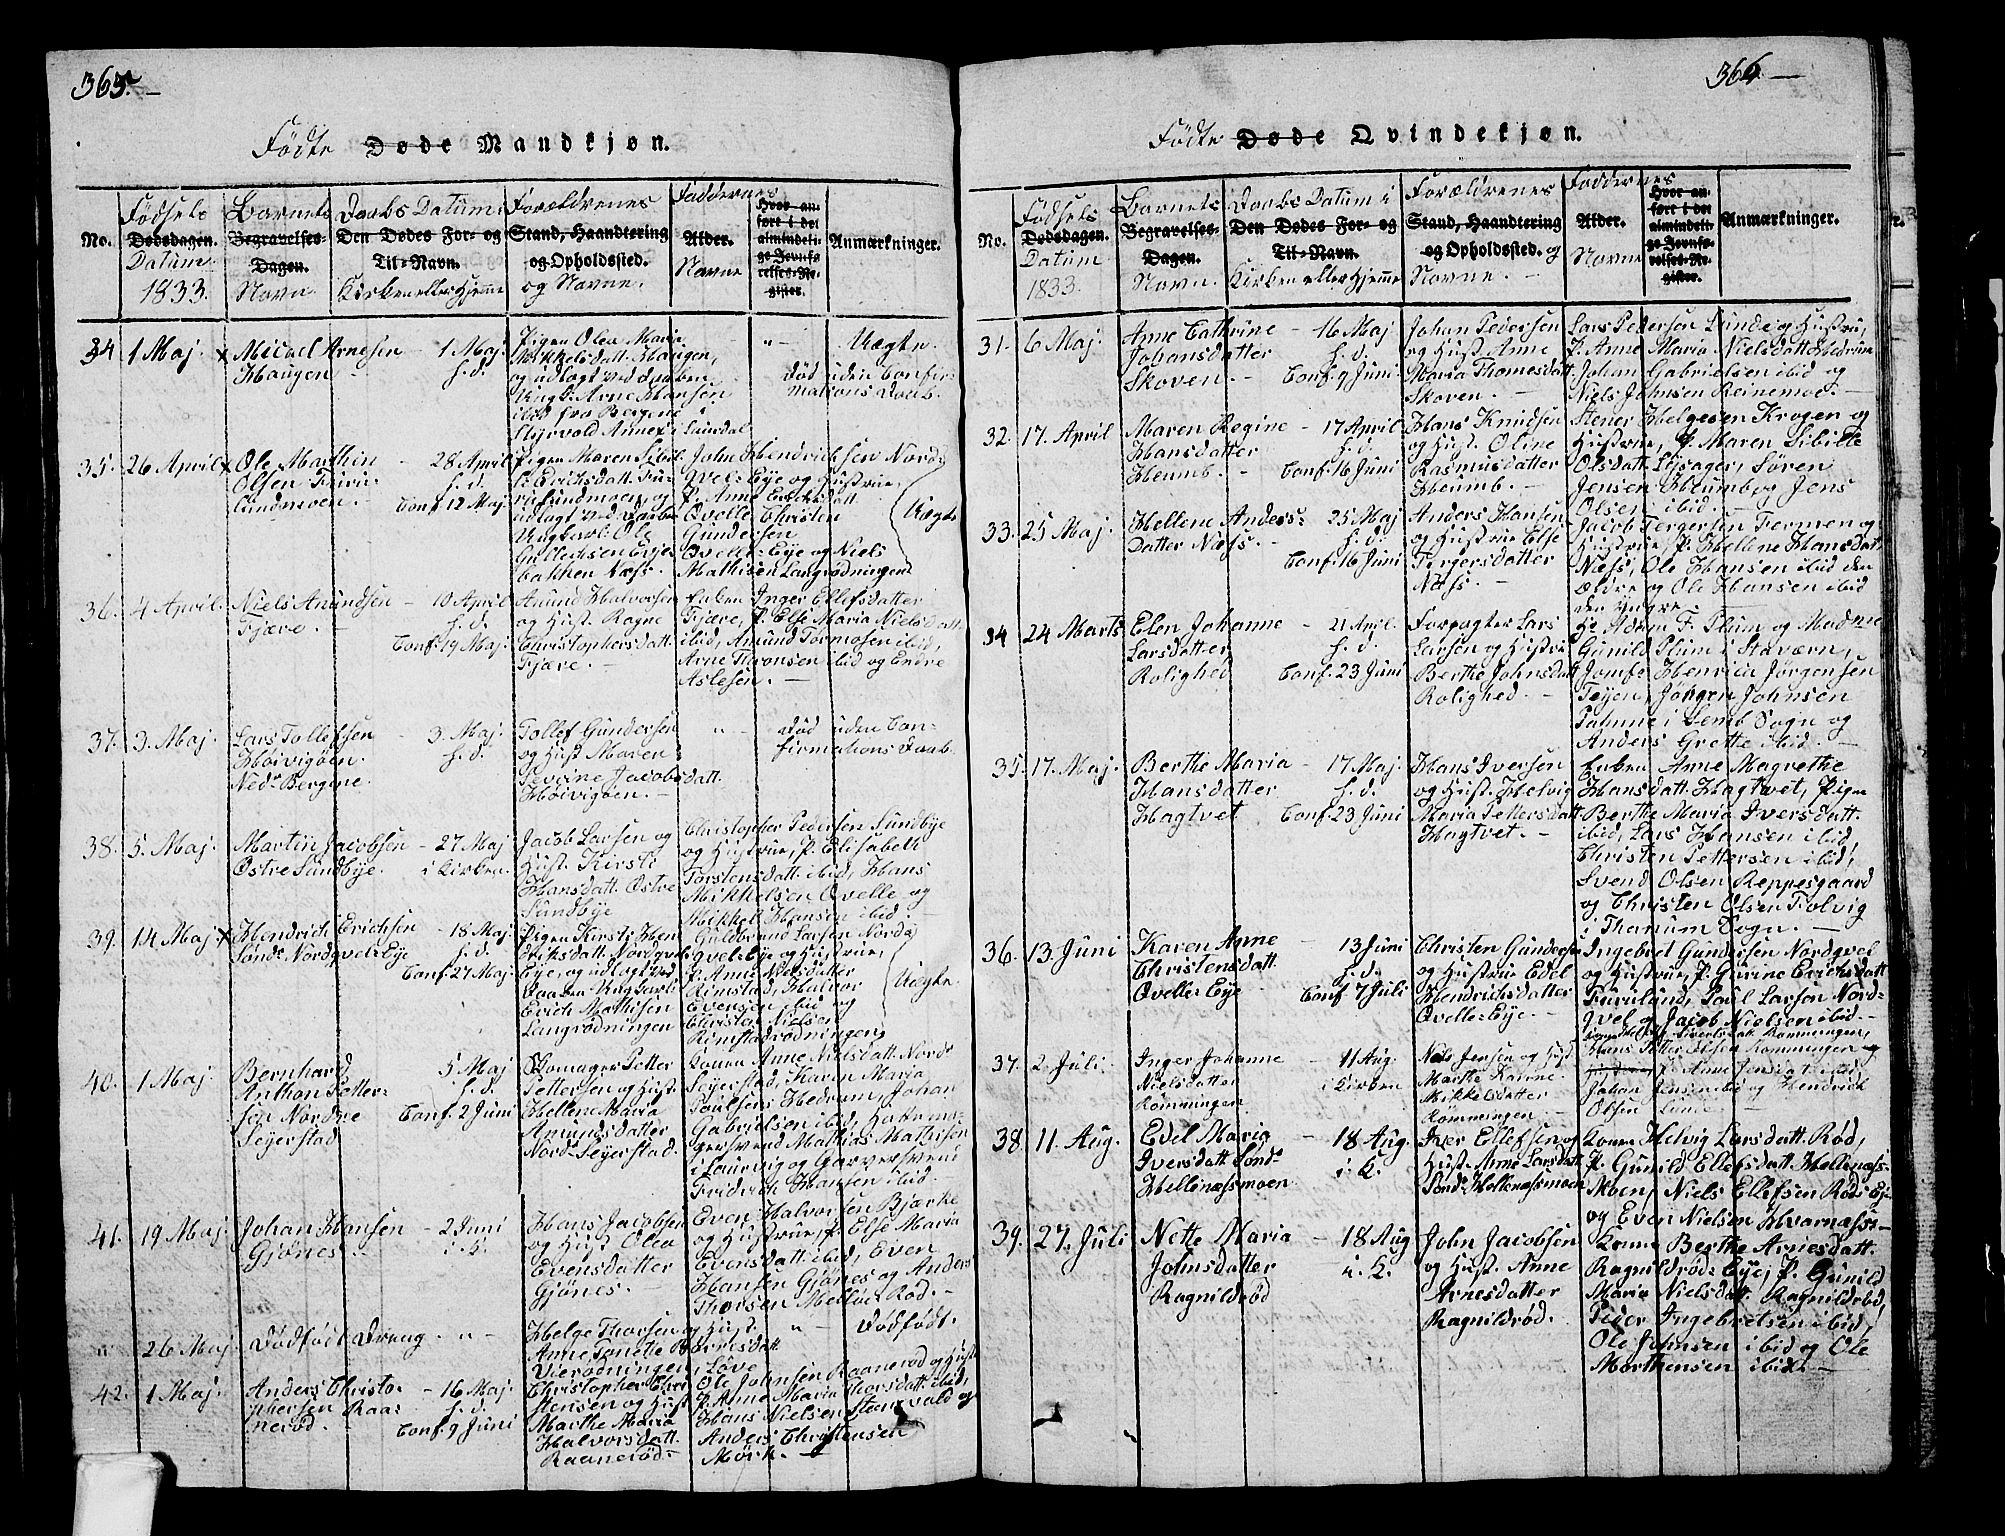 365. —
Fødte Døde Mandkjøn.
No.
Fødsels
Dødsdagen.
Datum
1833.
Barnets
Begravelses-
Dagen.
Navn.
Daabs Datum i
Den Dødes For- og
Til-Navn.
Kirken eller Hjemme
Forældrenes
Stand, Haandtering
og Opholdssted.
og Navne.
Faddernes
Alder.
Navne
Hvor an-
ført i det
almindeli-
ge Jevnfø-
relses-Re-
gister.
Anmærkninger.
34 1 Maj. x Micael Arnesen
Haugen
1 Maj.
h. d.
Pigen Olea Maria
Mikkelsdatt. Haugen,
og udlagt ved daaben
Ungk. Arne Hansen
ibid fra Bergene i
Styrvold Annex i Laurdal
Uægte.
Død uden Confir-
mations Daab.
35. 26 April x Ole Marthin
Olsen Furu-
lundmoen.
28 April
h. d.
Conf. 12 Maj
Pigen Maren Sibil-
le Erichsdatt. Fu-
rulundmoen, og
udlagt ved Daaben
Ungkarl Ole
Gullichsen Erje-
bakken Næss.
John Hendrichsen Nord-
qvel-Eye og Hustrue,
P. Anne Erichsdatt.
Ovelle, Christen
Gundersen
Ovelle-Eye og Niels
Mathisen Langrødningen
Uægte
36. 4 April. Niels Amundsen
Fjære.
10 April
h. d.
Conf. 19 Maj.
Amund Halvorsen
og Hust. Ragne
Christophersdatt.
Fjære.
Enken Inger Ellefsdatter
Fjære, P. Else Maria Nielsdatt.
ibid, Amund Tormosen ibid,
Arne Thronsen ibid og Endre
Aslesen. —
37. 3. Maj. Lars Tollefsen
Høivigøen
Ned. Bergene.
3. Maj.
h. d.
Tollef Gundersen
og Hust. Maren
Severine Jacobsdatt.
Høivigøen. —
Død uden Con-
firmations Daab
38. 5. Maj. Martin Jacobsen
Østre Sundbye.
27 Maj
i Kirken.
Jacob Larsen og
Hust. Kirsti
Hansdatt. Østre
Sundbye
Christopher Pedersen Sundbye
og Hustrue, P. Elisabeth
Torstensdatt. ibid, Hans
Mikkelsen Ovelle og
Mikkel Hansen ibid. —
39. 14 Maj x Hendrich Erichsen
Sønd. Nordqvel-Eye
18 Maj.
h. d.
Conf. 27 Maj.
Pigen Kirsti Hen-
driksdatt. Nordqvel-
Eye, og udlagt ved
Daaben Ungkarl
Erich Mathisen
Langrødningen
Guldbrand Larsen Nord-
qvel-Eye og Hustrue,
P. Anne Nielsdatter
Rimstad, Halvor
Evensen ibid og
Christen Nielsen
Rimstadrødningen.
Uægte.
40. 1 Maj Bernhard
Anthon Petter-
sen Nordre
Seyerstad
5 Maj
h. d.
Conf. 2 Juni
Skomager Petter
Pettersen og Hust.
Hellene Maria
Amundsdatter
Nord. Seyerstad.
Konen Anne Nielsdatt. Nord.
Seyerstad, Karen Maria
Poulsens Hedrum, Johan
Gabrielsen ibid,
Mathias Mathisen
i Laurvig og Garversvend
Fridrich Hansen ibid.
41. 19 Maj. Johan Hansen
Gjønes —
2 Juni
i K.
Hans Jacobsen
og Hust. Olea
Evensdatter
Gjønes. —
Even Halvorsen Bjerke
og Hustrue, P. Else Maria
Evensdatt. ibid, Even
Hansen Gjønes og Anders
Thorsen Melløe Rød. —
26 Maj. Dødfødt Dreng
Helge Thorsen og Hust.
Anne Tonette Borresdatt.
Vierødningen i Løve
Dødfødt.
42. 1 Maj. Anders Christo-
phersen Raa-
nerød. —
16 Maj.
h. d.
Conf. 9 Juni
Christopher Chri-
stensen og Hust.
Marthe Maria
Halvorsdatt.
Raanerød. —
Ole Johnsen Raanerød og Hust.
P. Anne Maria Thorsdatt. ibid,
Hans Nielsen Steensvald og
Anders Christensen
Mørk. —
366. —
Fødte Døde Qvindekjøn.
No.
Fødsels
Dødsdagen.
Datum
1833.
Barnets
Begravelses-
Dagen.
Navn.
Daabs Datum i
Den Dødes For- og
Til-Navn.
Kirken eller Hjemme
Forældrenes
Stand, Haandtering
og Opholdssted. og
Navne. —
Faddernes
Alder.
Navne
Hvor an-
ført i det
almindeli-
ge Jevnfø-
relses-Re-
gister.
Anmærkninger.
31. 6 Maj. Anne Cathrine
Johansdatter
Skoven. —
16 Maj
h. d.
Conf. 9 Juni
Johan Pedersen
og Hust. Anne
Maria Thomesdatt.
Skoven. —
Lars Pedersen Lunde og Hustru,
P. Anne Maria Nielsdatt. Hedrum
Johan Gabrielsen ibid og
Niels Johnsen Reinemoe. —
32. 17. April Maren Regine
Hansdatter
Heumb. —
17 April
h. d.
Conf. 16 Juni
Hans Knudsen
og Hust. Oline
Rasmusdatter
Heumb. —
Stener Helgesen Krogen og
Hustrue, P. Maren Sibille
Olsdatt. Lysager, Søren
Jensen Heumb og Jens
Olsen ibid. —
33. 25 Maj. Hellene Anders-
Datter Næss. —
25 Maj
h. d.
Conf. 16 Juni
Anders Hansen
og Hustrue Else
Torgersdatter
Næss.
Jacob Torgersen Formen og
Hustrue, P. Hellene Hansdat.
Næss, Ole Hansen ibid den
ældre og Ole Hansen ibid
den yngre. —
34 24 Marts Elen Johanne
Larsdatter
Rolighed
21 April.
h. d.
Conf. 23 Juni
Forpagter Lars
Larsen og Hustru
Berthe Johnsdatt.
Rolighed —
Hr. Adam F. Plum og Madme
Gunild Plum i Staværn,
Jomfr. Henrica Jørgensen
Føyen, Jørgen Johnsen
Palmne i Semb Sogn og
Anders Grette ibid. —
35. 17. Maj. Berthe Maria
Hansdatter
Hagtvet
17 Maj.
h. d.
Conf. 23 Juni
Hans Iversen
og Hust. Helvig
Maria Pettersdatt.
Hagtvet. —
Enken Anne Magrethe
Hansdatt. Hagtvet, Pigen
Berthe Maria Iversdatt.
ibid, Lars Hansen ibid
Christen Pettersen ibid,
Svend Olsen Reppesgaard
og Christen Olsen Folvig
i Thanum Sogn. —
36. 13 Juni Karen Anne
Christensdatt.
Ovelle-Eye
13 Juni
h. d.
Conf. 7 Juli
Christen Gundersen
og Hustrue Edel
Hendrichsdatter
Ovelle-Eye. —
Ingebret Gundersen Nordqvel
og Hustrue, P. Gurine Erichsdatt.
Furulund, Poul Larsen Nord-
qvel og Jacob Nielsen ibid. —
37. 2. Juli. Inger Johanne
Nielsdatter
Rømmingen.
11 Aug.
i Kirken
Niels Jensen og Hust.
Marthe Karine
Mikkelsdatter
Rømmingen. —
Hans Petter Ibsen Rømmingen og
P. Anne Jensdatt. ibid,
Johan Jensen ibid og Hendrich
Olsen Lunde —
38. 11. Aug. Edel Maria
Iversdatt. Sønd.
Hellenæssmoen
18 Aug.
i. K.
Iver Ellefsen og
Hust. Anne Larsdatt.
Sønd. Hellenæssmoen
Konen Helvig Larsdatt. Rød,
P. Gunild Ellefsdatt. Hellenæss-
Moen, Niels Ellefsen Røds Eje
og Even Nielsen Hvarnæss. —
39. 27. Juli Nette Maria
Johnsdatter
Ragnildrød
18 Aug
i. K.
John Jacobsen
og Hust. Anne
Arnesdatter
Ragnildrød.
Konen Berthe Arnesdatt.
Ragnildrøds Eye, P. Gunild
Maria Nielsdatt. Ragnildrød,
Peder Ingebretsen ibid,
Ole Johnsen ibid og Ole
Morthensen ibid. —